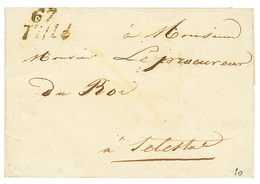 67
Villé
à Monsieur
Monsieur Le procureur
du Roi
à Selestat